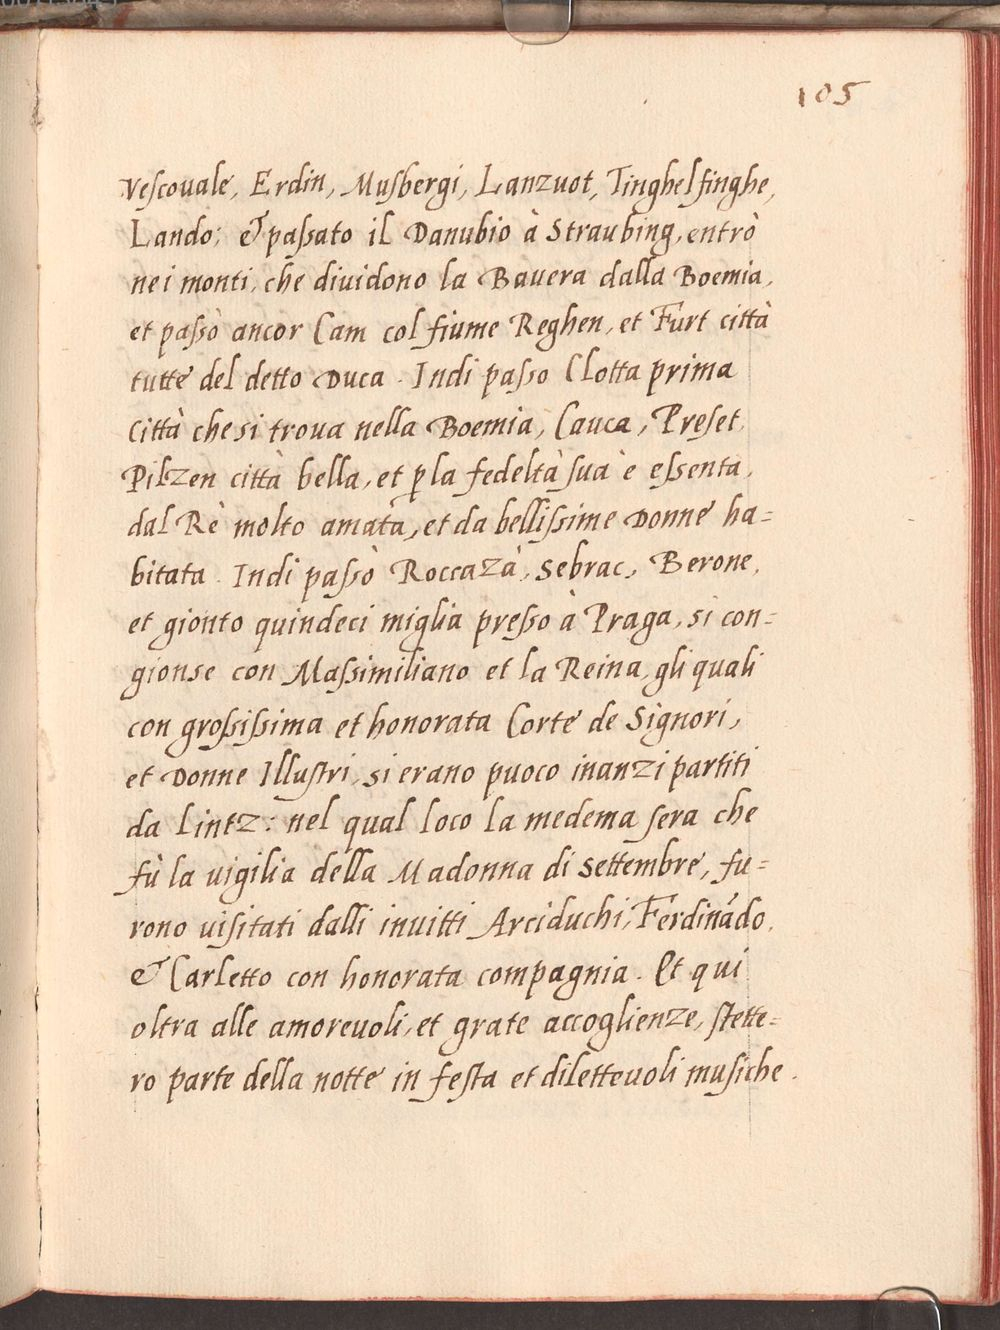 105
Vescouale, Erdin, Musbergi, Lanzuot, Tinghelfinghe,
Lando; & passato il Danubio à Straubing, entrò
nei monti, che diuidono la Bauera dalla Boemia,
et passò ancor Cam col fiume Reghen, et Furt città
tutte del detto Duca. Indi passo Clotta prima
Città che si troua nella Boemia, Cauca, Preset,
Pilzen città bella, et p la fedeltà sua è essenta,
dal Rè molto amata, et da bellissime Donne ha=
bitata. Indi passò Roccazà, Sebrac, Berone,
et gionto quindeci miglia presso à Praga, si con=
gionse con Massimiliano et la Reina, gli quali
con grossissima et honorata Corte de Signori,
et Donne Illustri, si erano puoco inanzi partiti
da Lintz: nel qual loco la medema sera che
fù la uigilia della Madonna di Settembre, fu=
rono uisitati dalli inuitti Arciduchi, Ferdinādo,
& Carletto con honorata compagnia. Et qui
oltra alle amoreuoli, et grate accoglienze, stette=
ro parte della notte in festa et diletteuoli musiche.